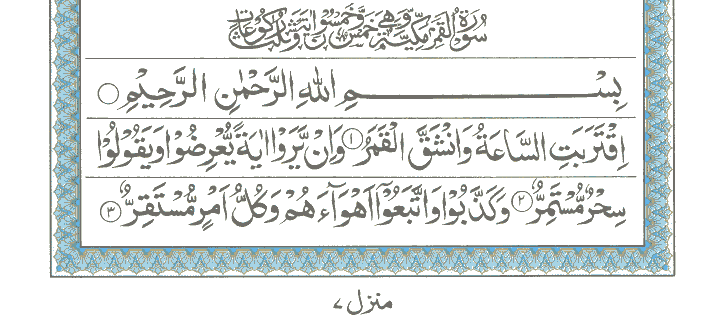 سُوْرَةُ الْقَمَرِ مَكِّيَّةٌ وَّهِيَ خَمْسٌ وَّخَمْسُوْنَ اٰيَةً وَّثَلٰثُ رُكُوْعَاتٍ
بِسْمِ اللّٰهِ الرَّحْمٰنِ الرَّحِيْمِ
اِقْتَرَبَتِ السَّاعَةُ وَانْشَقَّ الْقَمَرُ ۝۱ وَاِنْ يَّرَوْا اٰيَةً يُّعْرِضُوْا وَيَقُوْلُوْا
سِحْرٌ مُّسْتَمِرٌّ ۝۲ وَكَذَّبُوْا وَاتَّبَعُوْۤا اَهْوَآءَهُمْ وَكُلُّ اَمْرٍ مُّسْتَقِرٌّ ۝۳
منزل ۷